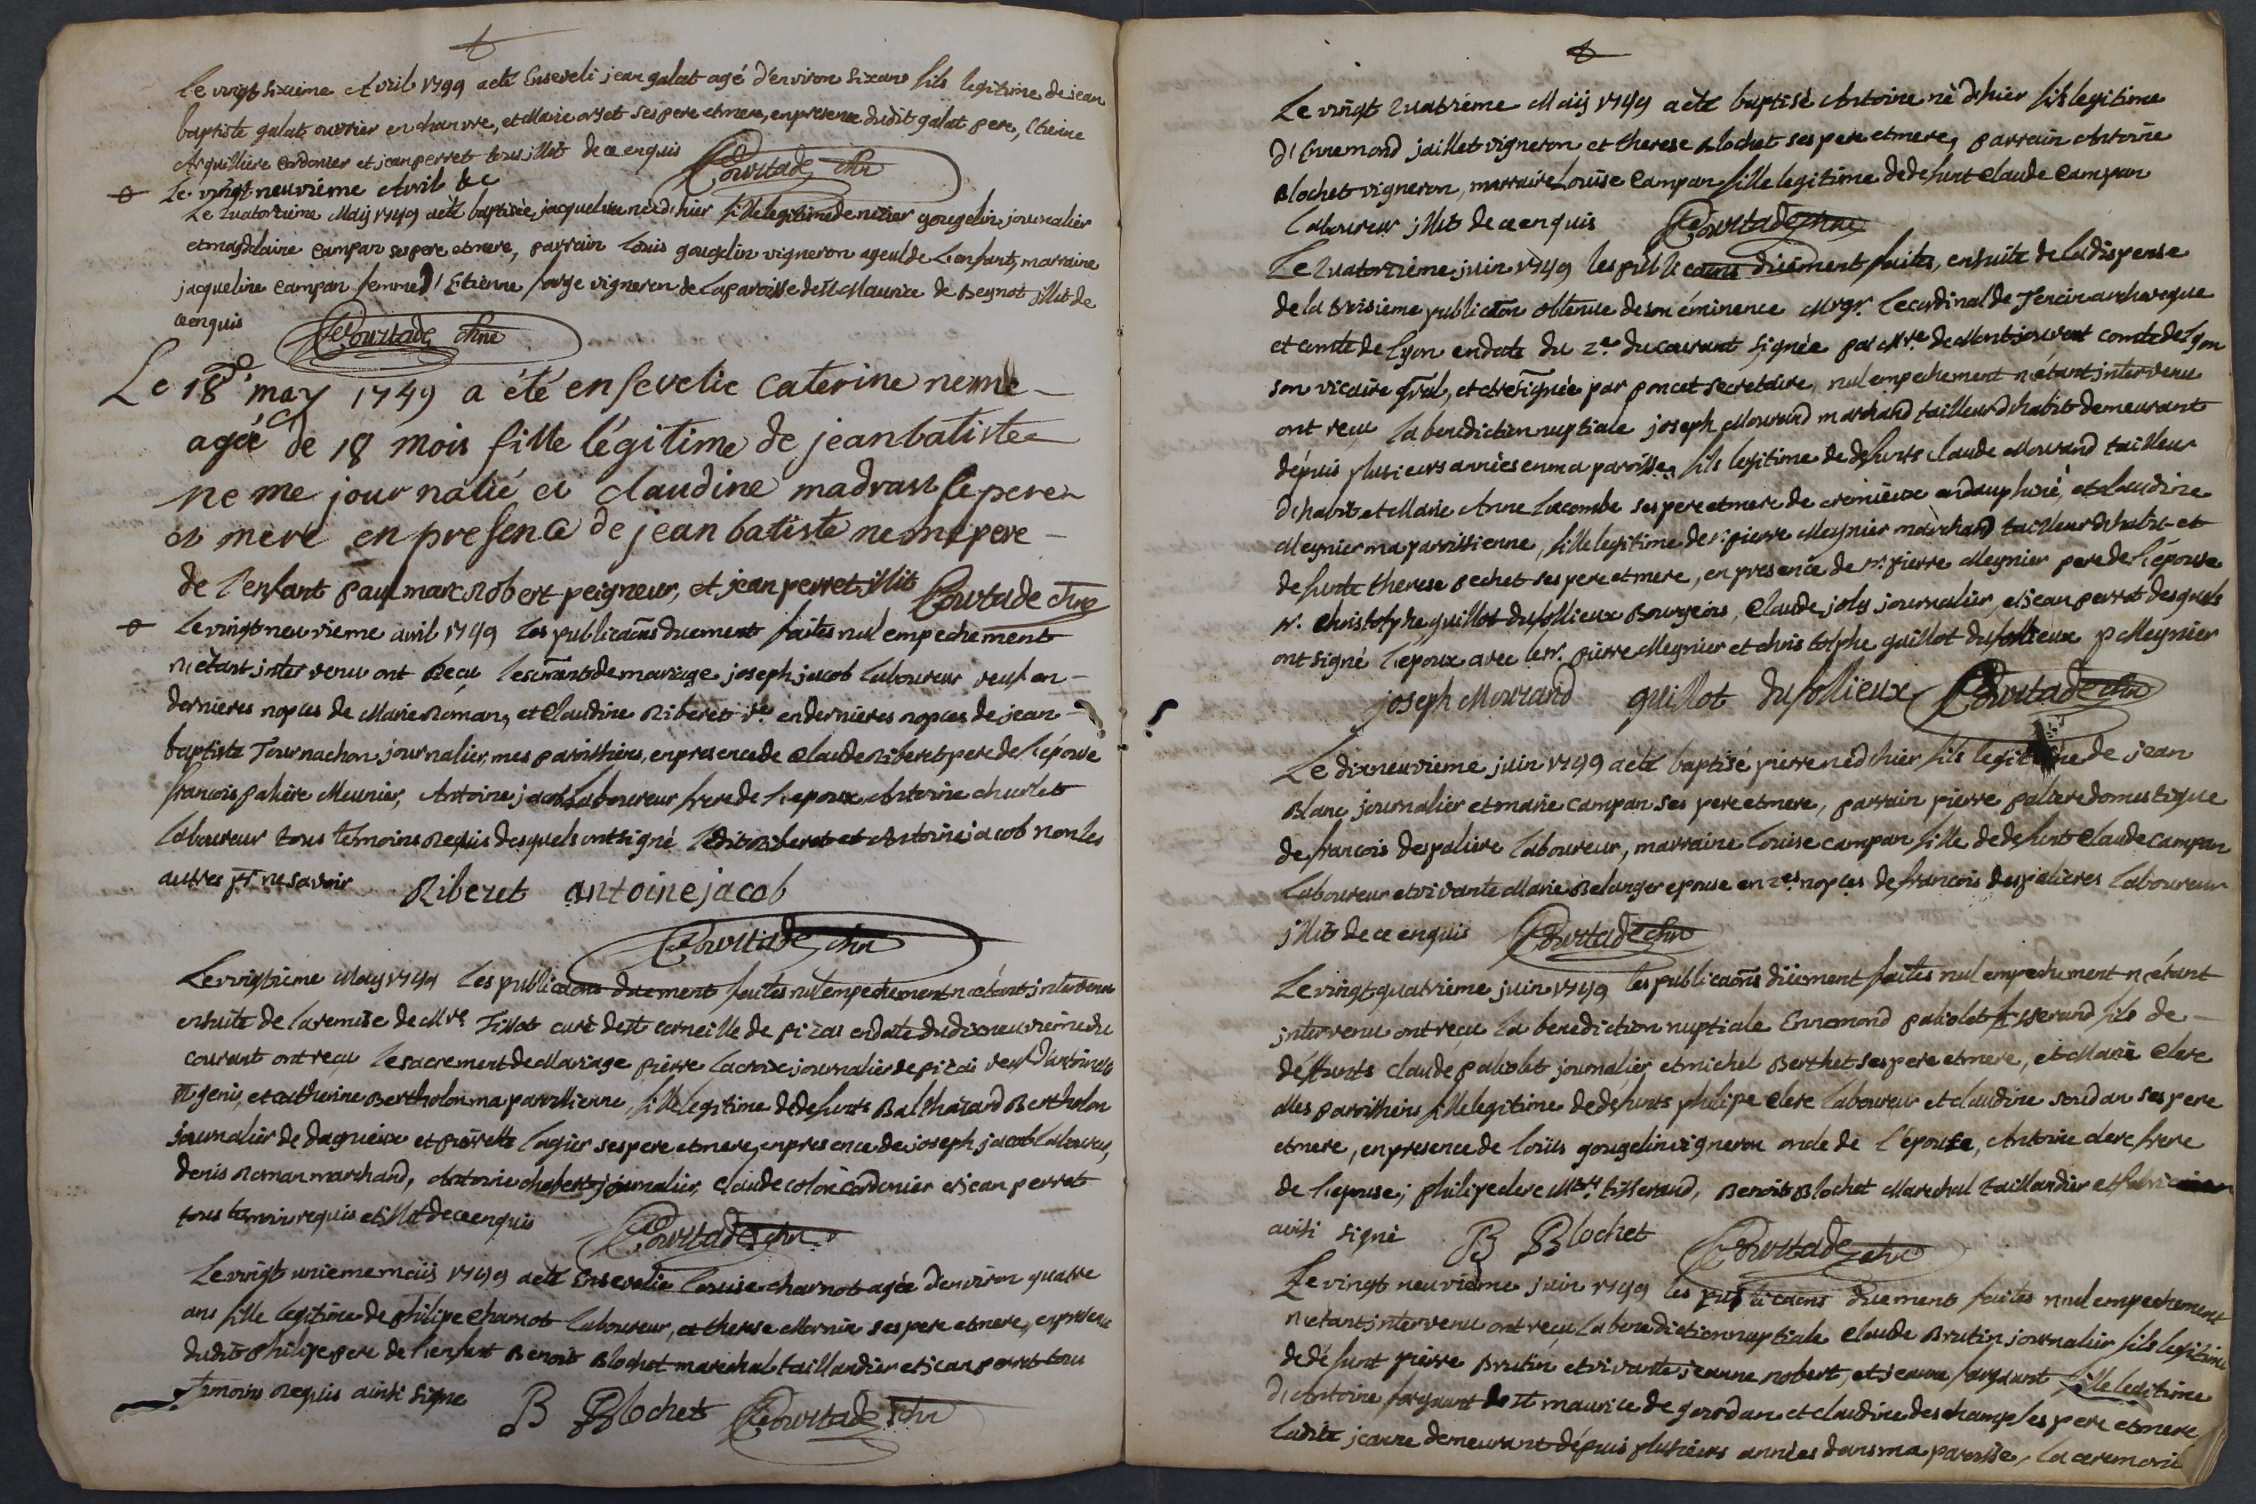 Le vingt sixieme Avril 1749 a eté Enseveli jean galat agé d'environ six ans fils legitime de jean
baptiste galat ouvrier en chanvre, et Marie orset ses pere et mere, en presence dudit galat pere, Etiene
Arquilliere Cordonier et jean perret tous illit de ce enquis Courtade
Le vingt neuvième Avril &c
Le quatorzieme Maij 1749 a eté baptisée jacqueline née d'hier fille legitime de nizier gougelin journalier
et magdelaine Campan ses pere et mere, parrain Louis gougelin vigneron ayeul de L'enfant, marraine
jacqueline Campan femme d'Etienne forge vigneron de la paroisse de St Maurice de Beynot illit de
ce enquis Courtade
Le 18e may 1749 a été ensevelie Caterine neme
agée de 18 mois fille légitime de jean batiste
neme journalié et claudine madran se pere
et mere en presence de jean batiste neme pere
de l'enfant paul marc Robert peigneur, et jean perret illit Courtade
Le vingt neuvieme avril 1749 les publicaons duement faites nul empechement
n'etant intervenu ont Reçu le sacrement de mariage joseph jacob Laboureur veuf en
dernieres nopces de Marie Roman, et Claudine Riberet ve en dernières nopces de jean
baptiste Tournachon journalier, mes paroissiens, en presence de Claude Riberet pere de l'épouse
francois paliere Meunier, Antoine jacob Laboureur frere de l'epoux Antoine churlet
laboureur tous témoins Requis desquels ont signé ledit Riberet et Antoine jacob non les
autres pr ne savoir Riberet antoine jacob
Courtade
Le vingtieme May 1749 les publicaons duement faites nul empechement n'etant intervenu
ensuite de la remise de Mre Tillot curé de St corneille de pizai en date du dixneuvième du
courant ont reçu le sacrement de Mariage pierre Lacroix journalier de pizai veuf d'antoinette
genis, et catherine Bertholon ma paroissienne, fille legitime de defunts Balthazard Bertholon
journalier de dagnieux et pierrette lagier ses pere et mere, en presence de joseph jacob Laboureur,
denis Roman marchand, Antoine chabert journalier, Claude colon Cordonier et jean perret
tous temoins requis et illit de ce enquis Courtade
Le vingt unieme maij 1749 a eté Ensevelie Louise charnot agée d'environ quatre
ans fille legitime de philipe Charnot Laboureur, et therese Mornie ses pere et mere, en presence
dudit philipe pere de l'enfant Benoit Blochet marechal taillandier et jean perret tous
temoins Requis ainsi signe B Blochet Courtade
Le vingt quatrième Maij 1749 a eté baptisé Antoine né d'hier fils legitime
d'Ennemond jaillet vigneron et therese Blochet ses pere et mere, parrain Antoine
Blochet vigneron, marraine Louise Campan fille legitime de defunt Claude Campan
Laboureur illit de ce enquis Courtade
Le quatorzième juin 1749 les publicaons düement faites, ensuite de la dispense
de la troisieme publicaon obtenue de son éminence Mgr. Le cardinal de Tencin archeveque
et comte de Lyon en date du 2e du courant signée par Mre de Montjouvent comte de Lyon
son vicaire gnral, et contresignée par poncet secretaire, nul empechement n'étant intervenu
ont reçu la benediction nuptiale joseph Mourand marchand tailleur d'habit demeurant
dépuis plusieurs années en ma paroisse, fils legitime de defunts Claude Mourand tailleur
d'habit et Marie Anne Lacombe ses pere et mere de cremieux en dauphiné, et claudine
Meynier ma paroissienne, fille legitime de sr pierre Meynier marchand tailleur d'habit et
defunte therese pechet ses pere et mere, en presence de sr. pierre Meynier pere de l'épouse
sr. Christolphe guillot dufollieux Bourgeois, Claude joly journalier, et jean perret desquels
ont signé l'époux avec le sr. pierre Meynier et christolphe guillot dufollieux P Meynier
joseph Mourand guillot dufollieux Courtade
Le dixneuvieme juin 1749 a eté baptisé pierre né d'hier fils legitime de jean
Blanc journalier et marie Campan ses pere et mere, parrain pierre paliere domestique
de francois despaliere laboureur, marraine Louise campan fille de defunt Claude Campan
Laboureur et vivante Marie Belanger epouse en 2es nopces de francois despalieres laboureur
illit de ce enquis Courtade
Le vingt quatrieme juin 1749 les publicaons düement faites nul empechement n'étant
intervenu ont reçu la benediction nuptiale Ennemond paliolet tisserand fils de
deffunts Claude paliolet journalier et michel Berthet ses pere et mere, et Marie Clerc
Mes paroissiens fille legitime de defunts philipe Clerc laboureur et claudine soudan ses pere
et mere, en presence de Loüis gougelin vigneron oncle de l'épouse, Antoine clerc frere
de l'epouse, philipe clerc tisserand, Benoit Blochet Marechal taillandier et
ainsi signé B Blochet Courtade
Le vingt neuvième juin 1749 les publicaons duement faites nul empechement
n'etant intervenu ont reçu la benediction nuptiale Claude Brutin journalier fils legitime
de défunt pierre Brutin et vivante jeanne Robert, et jeanne forgaunt fille legitime
d'Antoine forgaunt de St maurice de gourdan et claudine deschamp ses pere et mere
ladite jeanne demeurant dépuis plusieurs années dans ma paroisse, la ceremonie